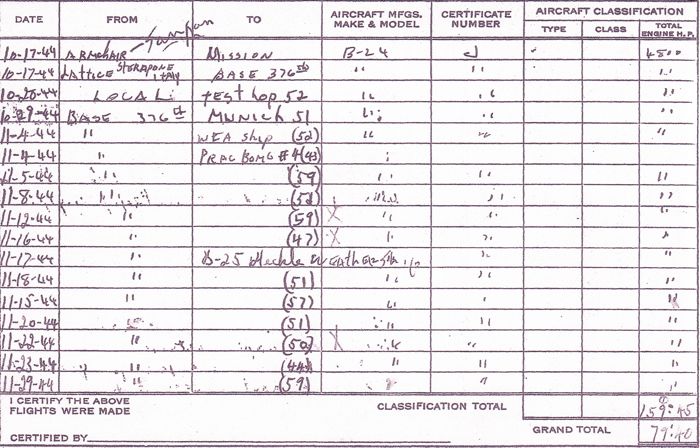 DATE FROM TO AIRCRAFT MFGS. MAKE & MODEL CERTIFICATE NUMBER AIRCRAFT CLASSIFICATION
TYPE CLASS TOTAL ENGINE H.P.
10-17-44 ARMCHAIR MISSION B-24 4800
10-17-44 LATTICE STERAPONE ITALY BASE 376th " " "
10-20-44 LOCAL test hop 52 " " "
10-29-44 BASE 376th MUNICH 51 " "
11-4-44 " WEA ship (52) " " "
11-4-44 " PRAC BOMB #4 (43) "
11-5-44 " (59) " " "
11-8-44 " (52) " " "
11-12-44 " (59) X " " "
11-16-44 " (47) X " " "
11-17-44 " B-25 WEATHER " "
11-18-44 " (51) " " "
11-15-44 " (57) " "
11-20-44 " (51) " " "
11-22-44 " (50) X " " "
11-23-44 " (44) " " "
11-29-44 " (59) " "
I CERTIFY THE ABOVE FLIGHTS WERE MADE CLASSIFICATION TOTAL 159:45
CERTIFIED BY GRAND TOTAL